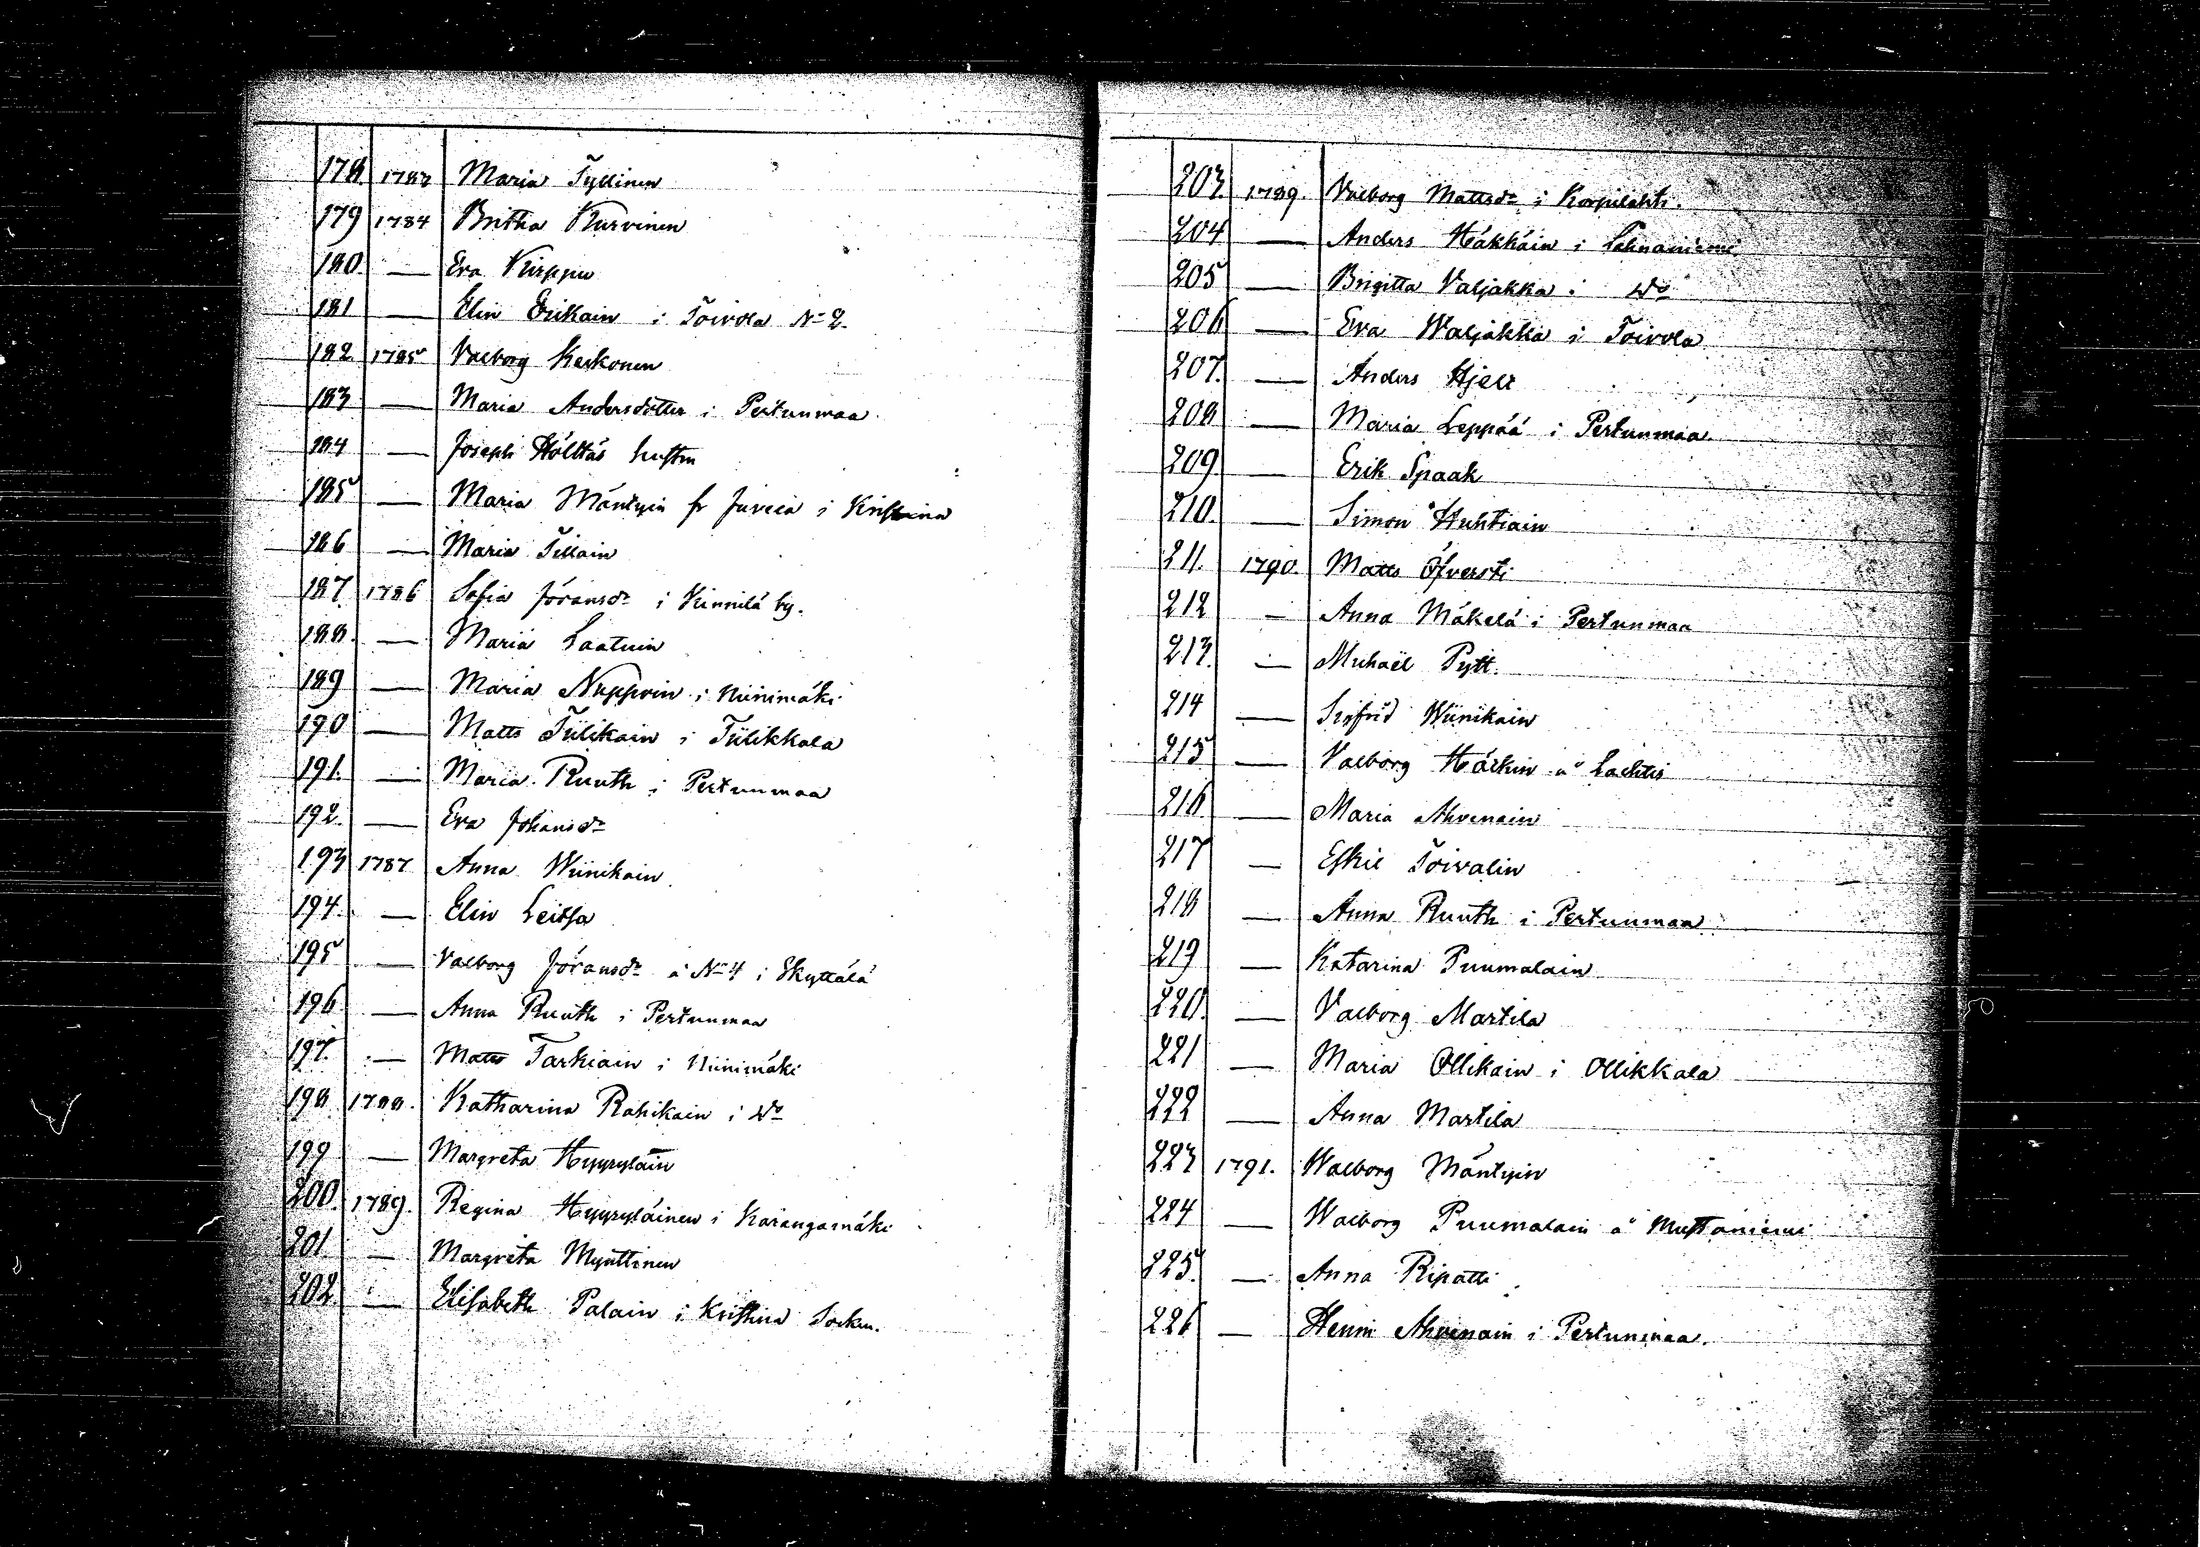 178 1783 Maria Tyllinen
179 1784 Britha Kurvinen
180. — Eva Kirppu
181 — Elin Erikain i Toivola No 2.
182. 1785 Valborg Keskonen
183 — Maria Andersdotter i Pertunmaa.
184 — Joseph Hölttäs hustru
185 — Maria Mäntyin fr Juveia i Kristina
186 — Maria Tillain
187. 1786 Sofia Göransdr i Kinnilä by.
188. — Maria Laatuin
189 — Maria Nuppoin i Niinimäki
190 — Matts Tiilikain i Tiilikkala
191. — Maria Ruuth i Pertunmaa
192. — Eva Johansdr
193 1787 Anna Wiinikain
194. — Elin Leissa
195 — Valborg Göransdr å No 4 i Skyttälä
196 — Anna Ruuth i Pertunmaa
197. — Matts Tarkiain i Niinimäki
198 1788. Katharina Rahikain i Do
199 — Margreta Hyyryläin
200. 1789. Regina Hyyryläinen i Karangamäki
201 — Margreta Mynttinen
202. — Elisabeth Palain i Kristina Socken.
203. 1789. Valborg Mattsdr i Korpilahti.
204 — Anders Häkkäin i Lahnaniemi
205 — Brigitta Valjakka i Do
206 — Eva Waljakka i Toivola
207. — Anders Hjelt
208 — Maria Leppää i Pertunmaa.
209 — Erik Spaak
210. — Simon Huhtiain
211. 1790. Matts Öfversti
212 — Anna Mäkelä i Pertunmaa
213. — Michaël Pytt.
214 — Sigfrid Wiinikain
215 — Valborg Häckin å Lachtis
216 — Maria Ahvenain
217 — Eskil Toivalin
218 — Anna Ruuth i Pertunmaa
219 — Katarina Puumalain
220. — Valborg Martila
221 — Maria Ollikain i Ollikkala
222 — Anna Martila
223 1791. Walborg Mäntyin
224 — Walborg Puumalain å Mustaniemi
225. — Anna Ripatti
226 — Henrn Ahvenain i Pertunmaa.